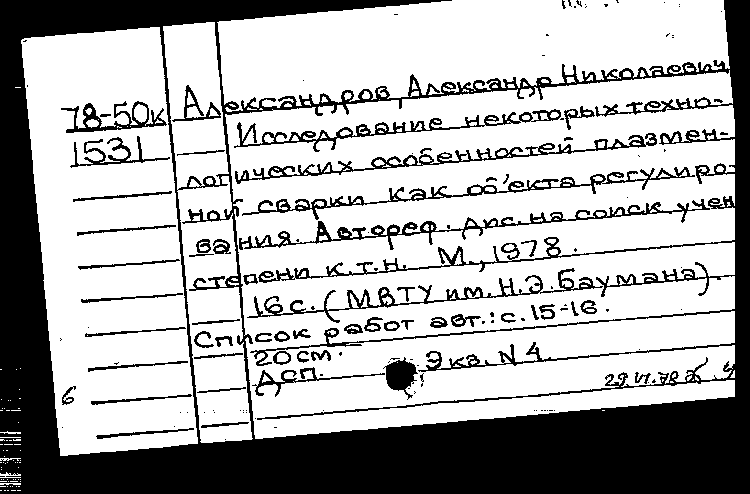 78-50к Александров, Александр Николаевич
1531 Исследование некоторых техно-
логических особенностей плазмен-
ной сварки как об'екта регулиро-
вания. Автореф. дис. на соиск учен
степени к.т.н. М., 1978.
16 с. (МВТУ им. Н.Э. Баумана).
Список работ авт.: с. 15-16.
20 см.
Дсп. Экв. N 4.
6 29.VI.78